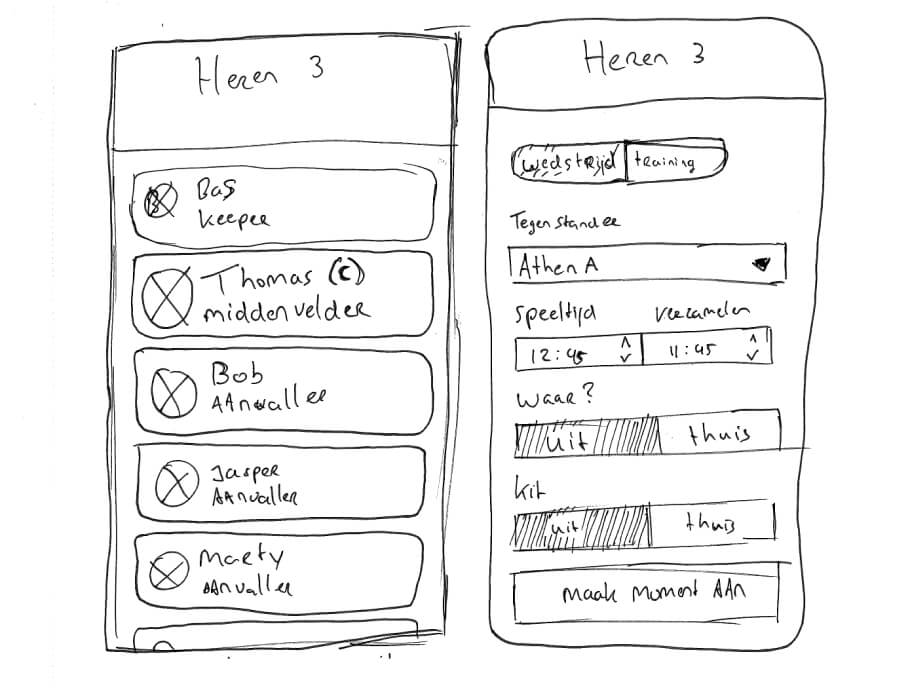 Heren 3
Bas
keeper
Thomas (c)
middenvelder
Bob
AAnvaller
Jasper
AAnvaller
Maerty
AAnvaller
Heren 3
wedstrijd training
Tegenstander
Athena
speeltijd verzamelen
12:45 11:45
waar?
uit thuis
kit
uit thuis
maak moment AAn